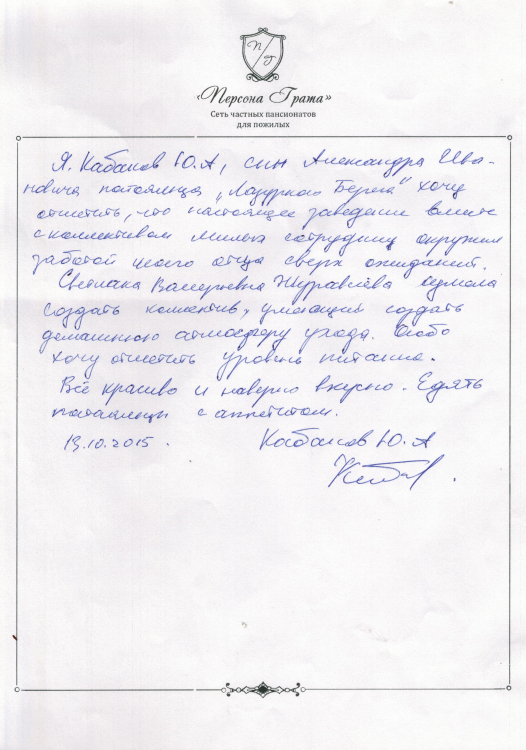 П Г
«Персона Грата»
Сеть частных пансионатов
для пожилых
Я. Кабанов Ю.А, сын Александра Ива-
новича постояльца „Лазурного Берега" хочу
отметить, что настоящее заведение вместе
с коллективом милых сотрудниц окружили
заботой моего отца сверх ожиданий.
Светлана Валерьевна Журавлёва сумела
создать коллектив, умеющий создать
домашнюю атмосферу ухода. Особо
хочу отметить уровень питания.
Всё красиво и наверно вкусно. Едять
постояльцы с аппетитом.
13.10.2015. Кабанов Ю.А